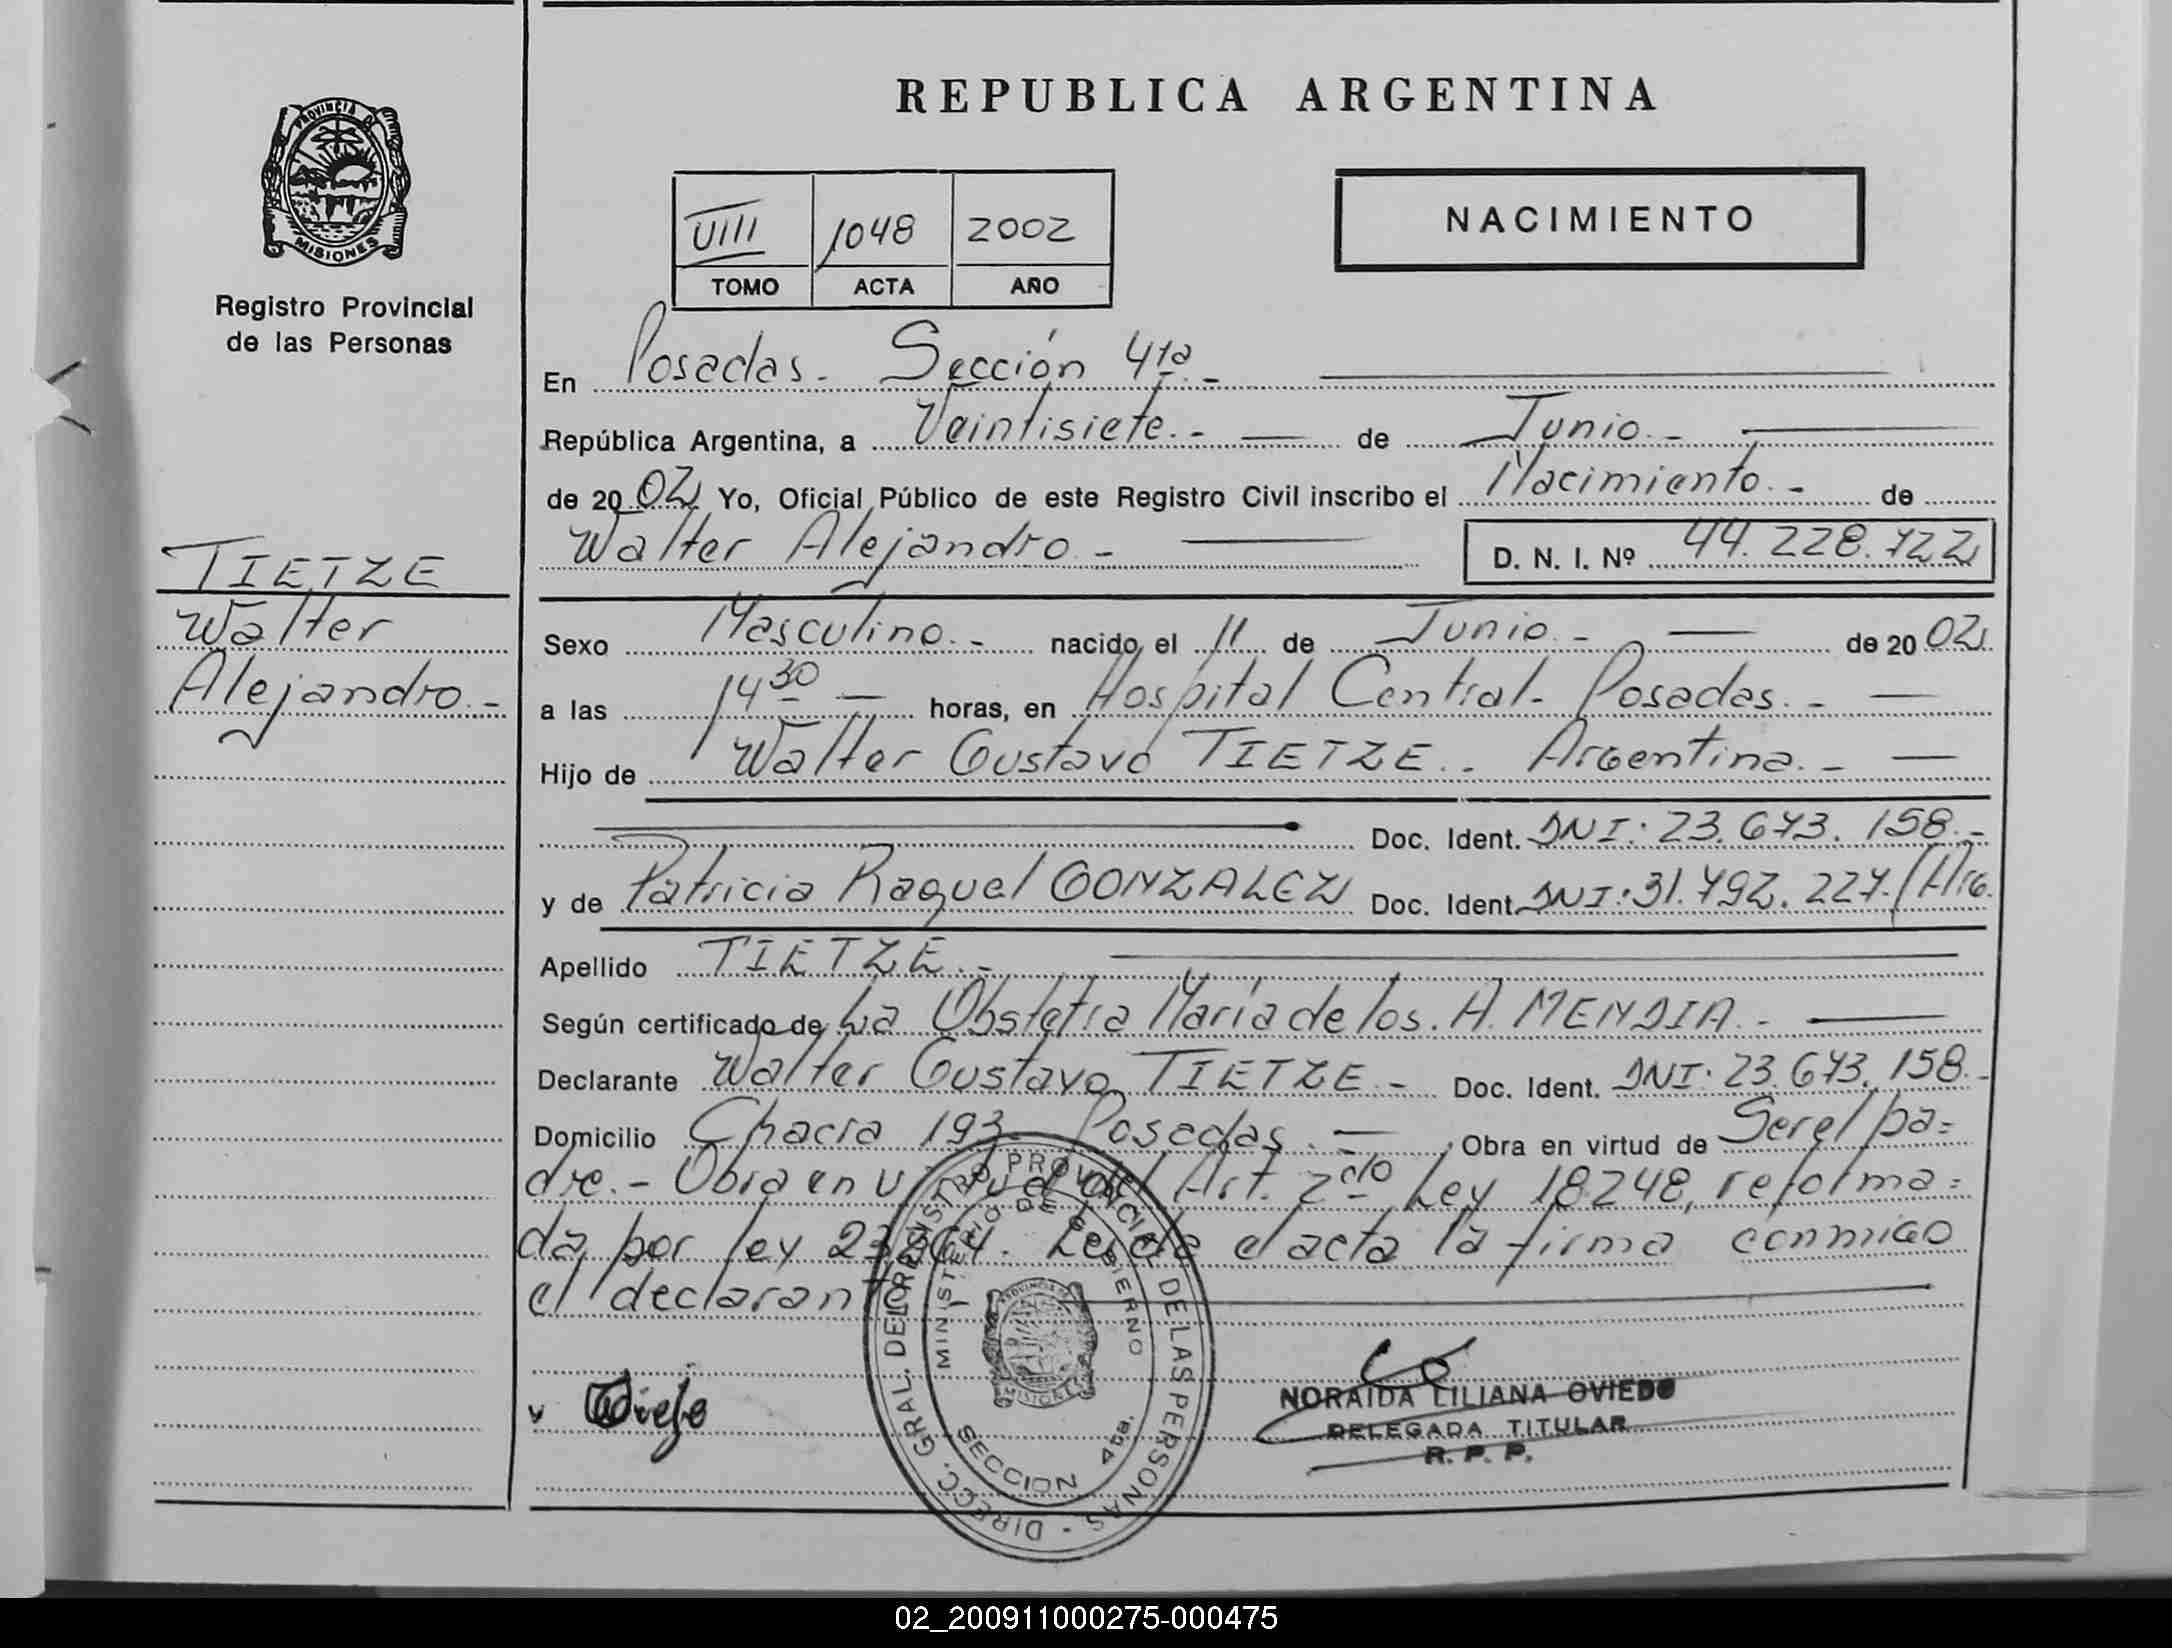 REPUBLICA ARGENTINA
PROVINCIA DE MISIONES
Registro Provincial
de las Personas
VIII 1048 2002
TOMO ACTA AÑO
NACIMIENTO
En Posadas.- Sección 4ta.-
República Argentina, a Veintisiete.- de Junio.-
de 2002 Yo, Oficial Público de este Registro Civil inscribo el Nacimiento.- de
Walter Alejandro.- D. N. I. Nº 44.228.722
TIETZE
Walter
Alejandro.-
Sexo Masculino.- nacido el 11 de Junio.- de 2002
a las 14 30 horas, en Hospital Central- Posadas.-
Hijo de Walter Gustavo TIETZE.- Argentina.-
Doc. Ident. DNI: 23.673.158.-
y de Patricia Raquel GONZALEZ Doc. Ident. DNI: 31.792.227.(Arg.
Apellido TIETZE.-
Según certificado de La Obstetra María de los. A. MENDIA.-
Declarante Walter Gustavo TIETZE.- Doc. Ident. DNI: 23.673.158.-
Domicilio Chacra 193 Posadas.- Obra en virtud de Ser el pa=
dre.- Obra en virtud del Art. 2do Ley 18.248, reforma=
da por ley 23.264. Leída el acta la firma conmigo
el declarante
DIRECC. GRAL. DEL REGISTRO PROVINCIAL DE LAS PERSONAS -
MINISTERIO DE GOBIERNO
SECCION 4ta.
PROVINCIA DE MISIONES
NORAIDA LILIANA OVIEDO
DELEGADA TITULAR
R. P. P.
02_200911000275-000475